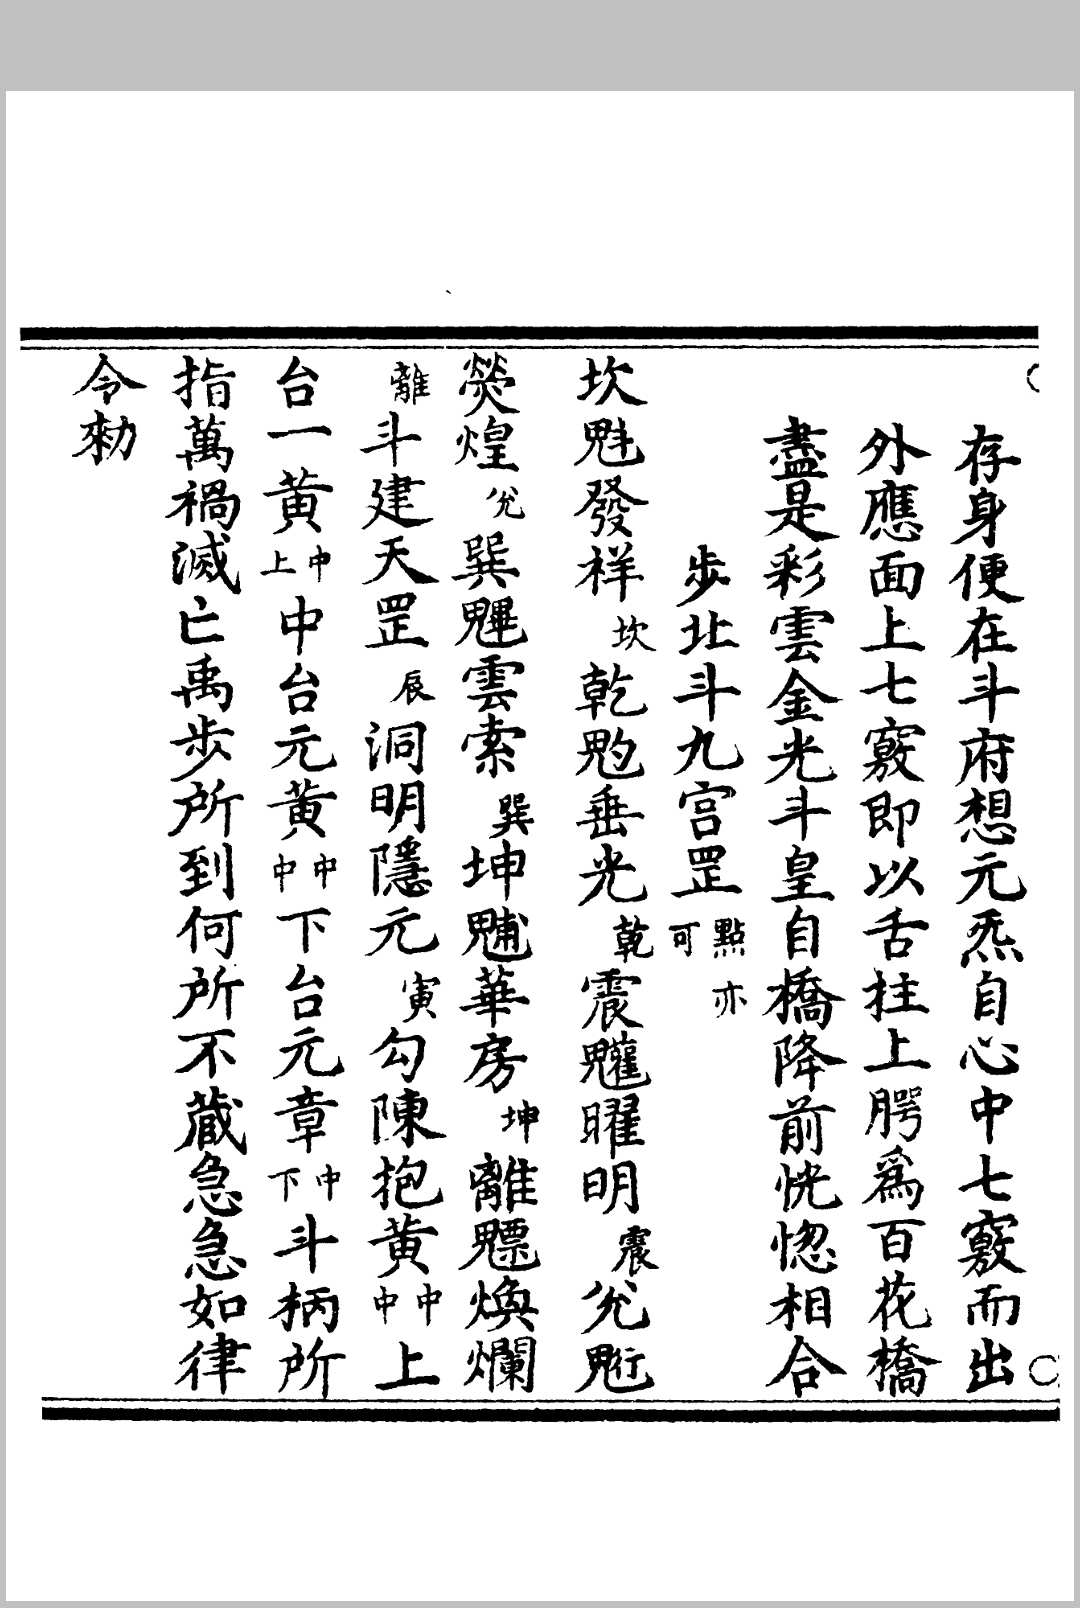 存身便在斗府想元炁自心中七竅而出
外應面上七竅即以舌拄上腭爲百花橋
盡是彩雲金光斗皇自橋降前恍惚相合
步北斗九宫罡點亦可
坎魁發祥坎乾魡垂光乾震䰟曜明震兊魓
熒煌兊巽魓雲索巽坤䰢華房坤離魒煥爛
離斗建天罡辰洞明隱元寅勾陳抱黄中中上
台一黄中上中台元黄中中下台元章中下斗柄所
指萬禍滅亡禹步所到何所不蔵急急如律
令勑